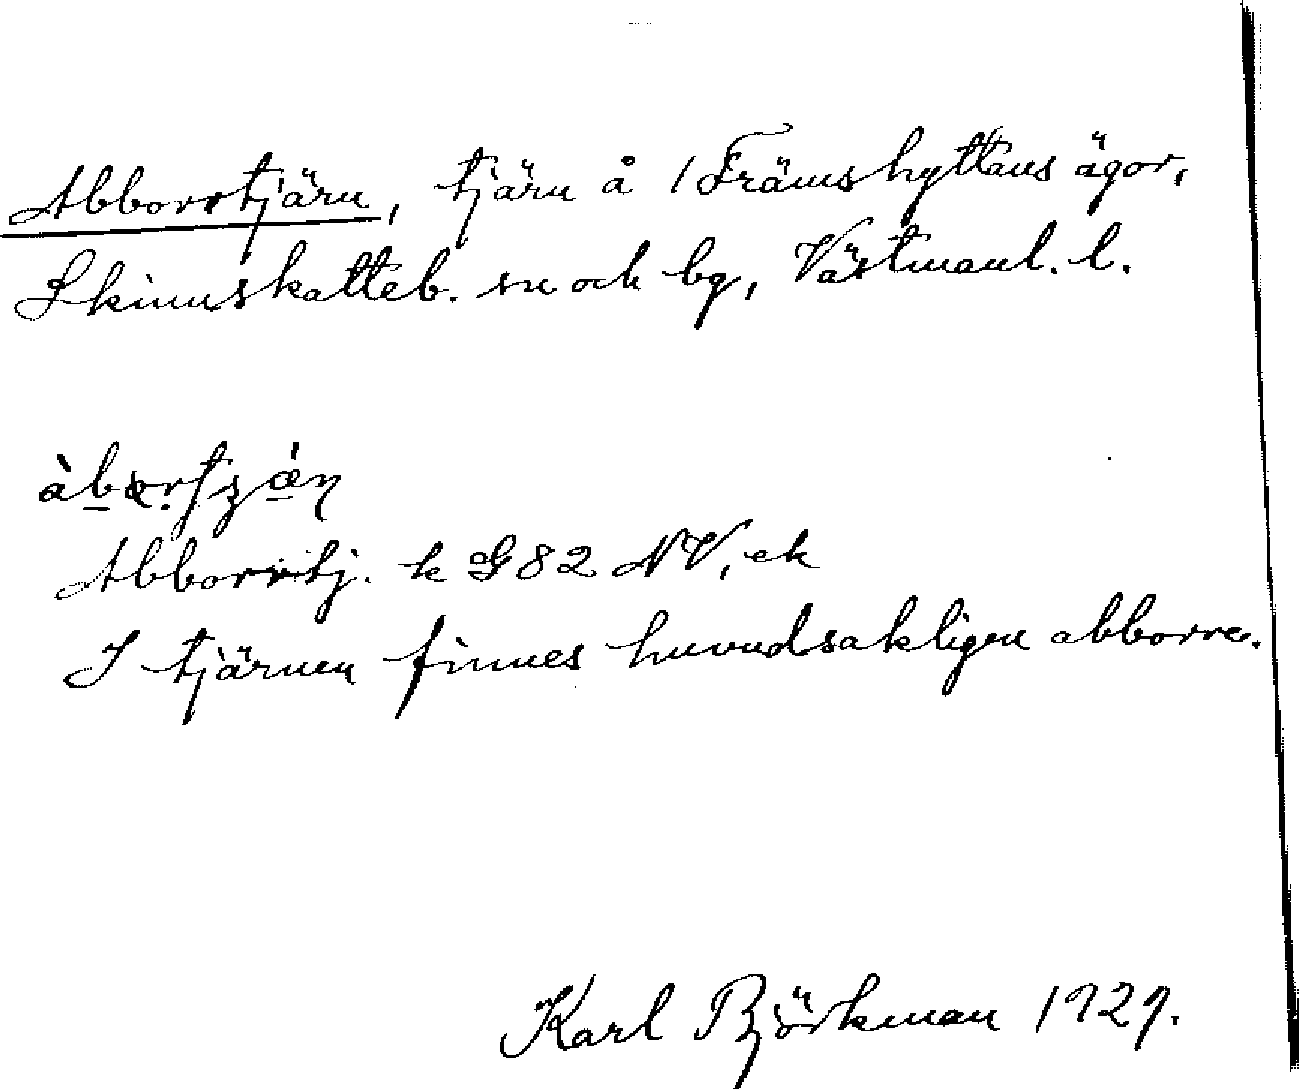 Abborrtjärn, tjärn å /Främshyttans ägor,
Skinnskatteb. sn och bg, Västmanl. l.
Abborrtj. k G82 NV, ek
I tjärnen finnes huvudsakligen abborre.
Karl Björkman 1929.